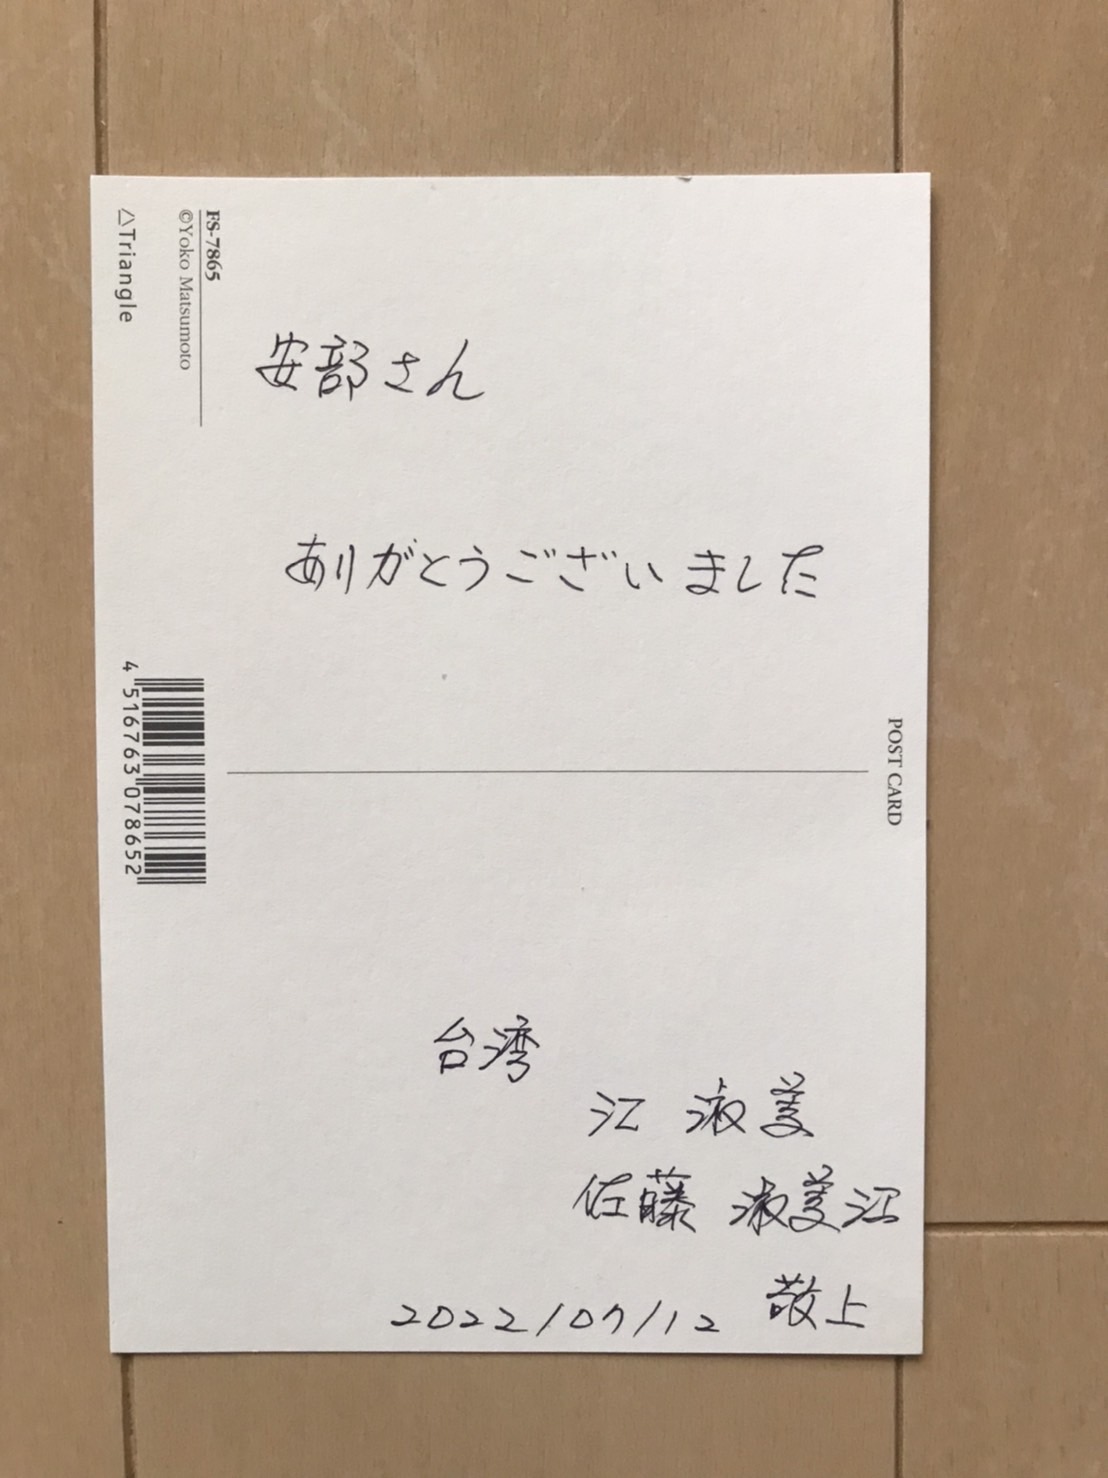 FS-7865
©Yoko Matsumoto
△Triangle
安部さん
ありがとうございました
POST CARD
4 516763 078652
台湾
江 淑美
佐藤 淑美江
敬上
2022/07/12